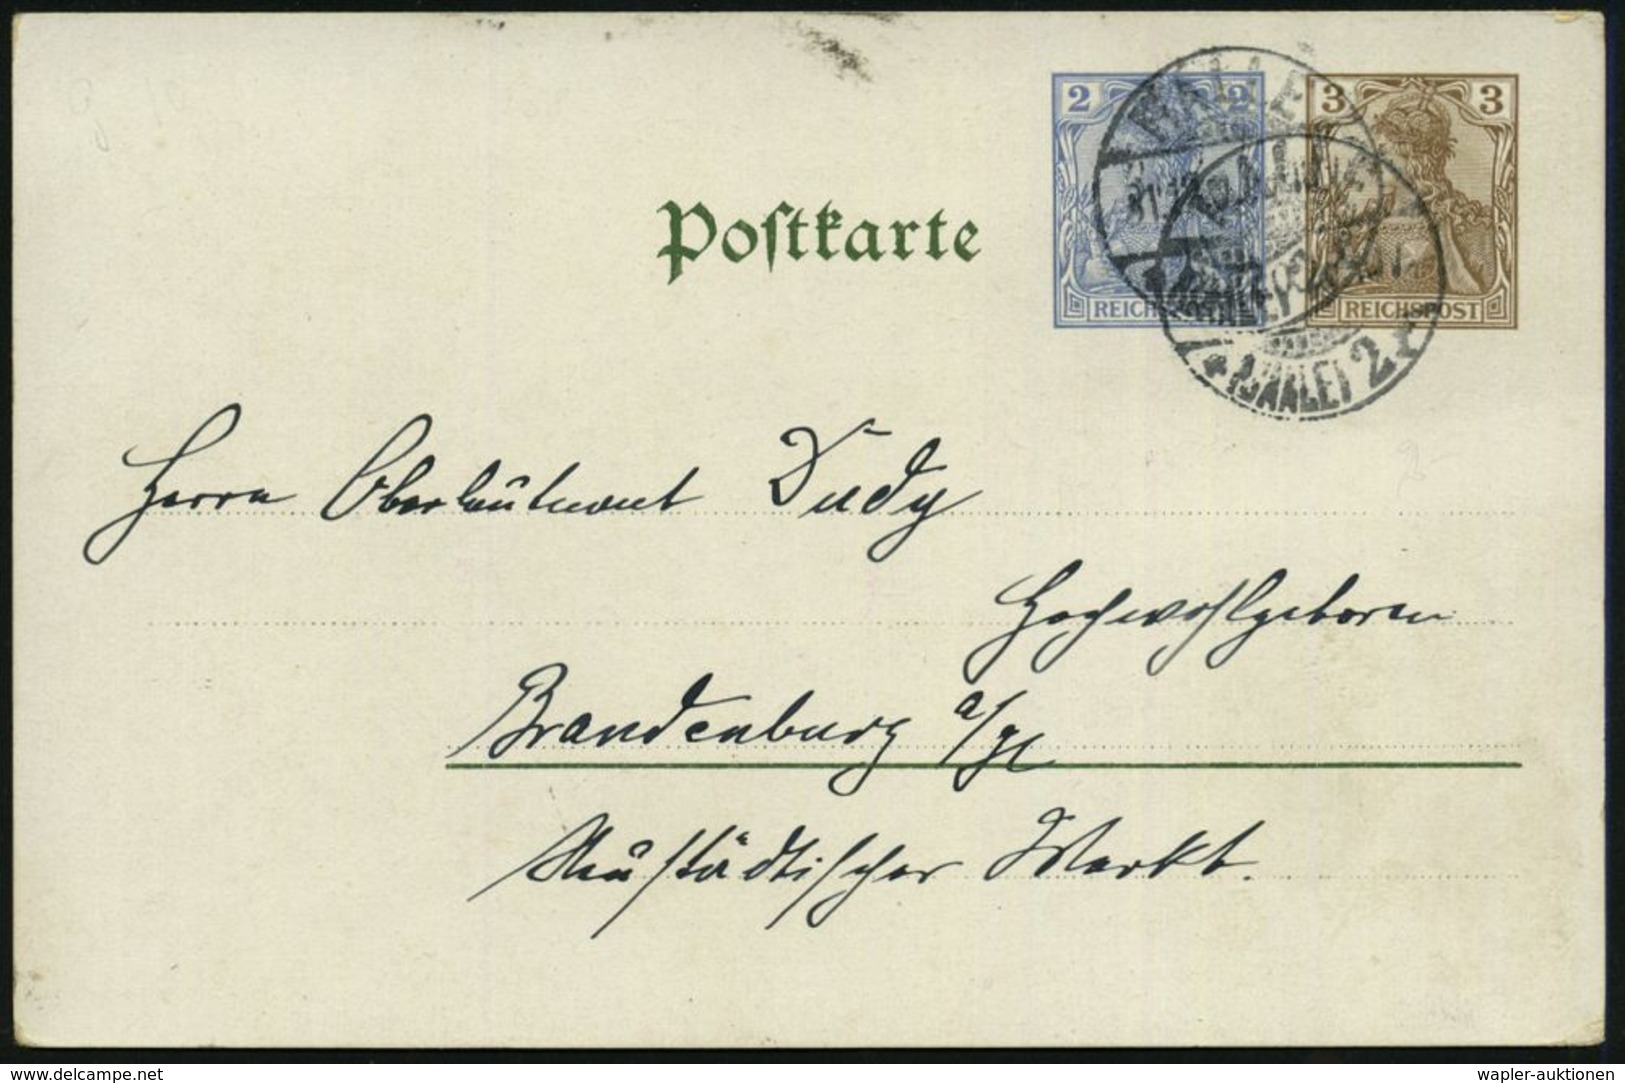 2 2 3 3
REICHSPOST
Postkarte
HALLE
(SAALE) 2
Herrn Oberleutnant Dudy
Hochwohlgeboren
Brandenburg a/H
Neustädtischer Markt.
www.delcampe.net
wapler-auktionen